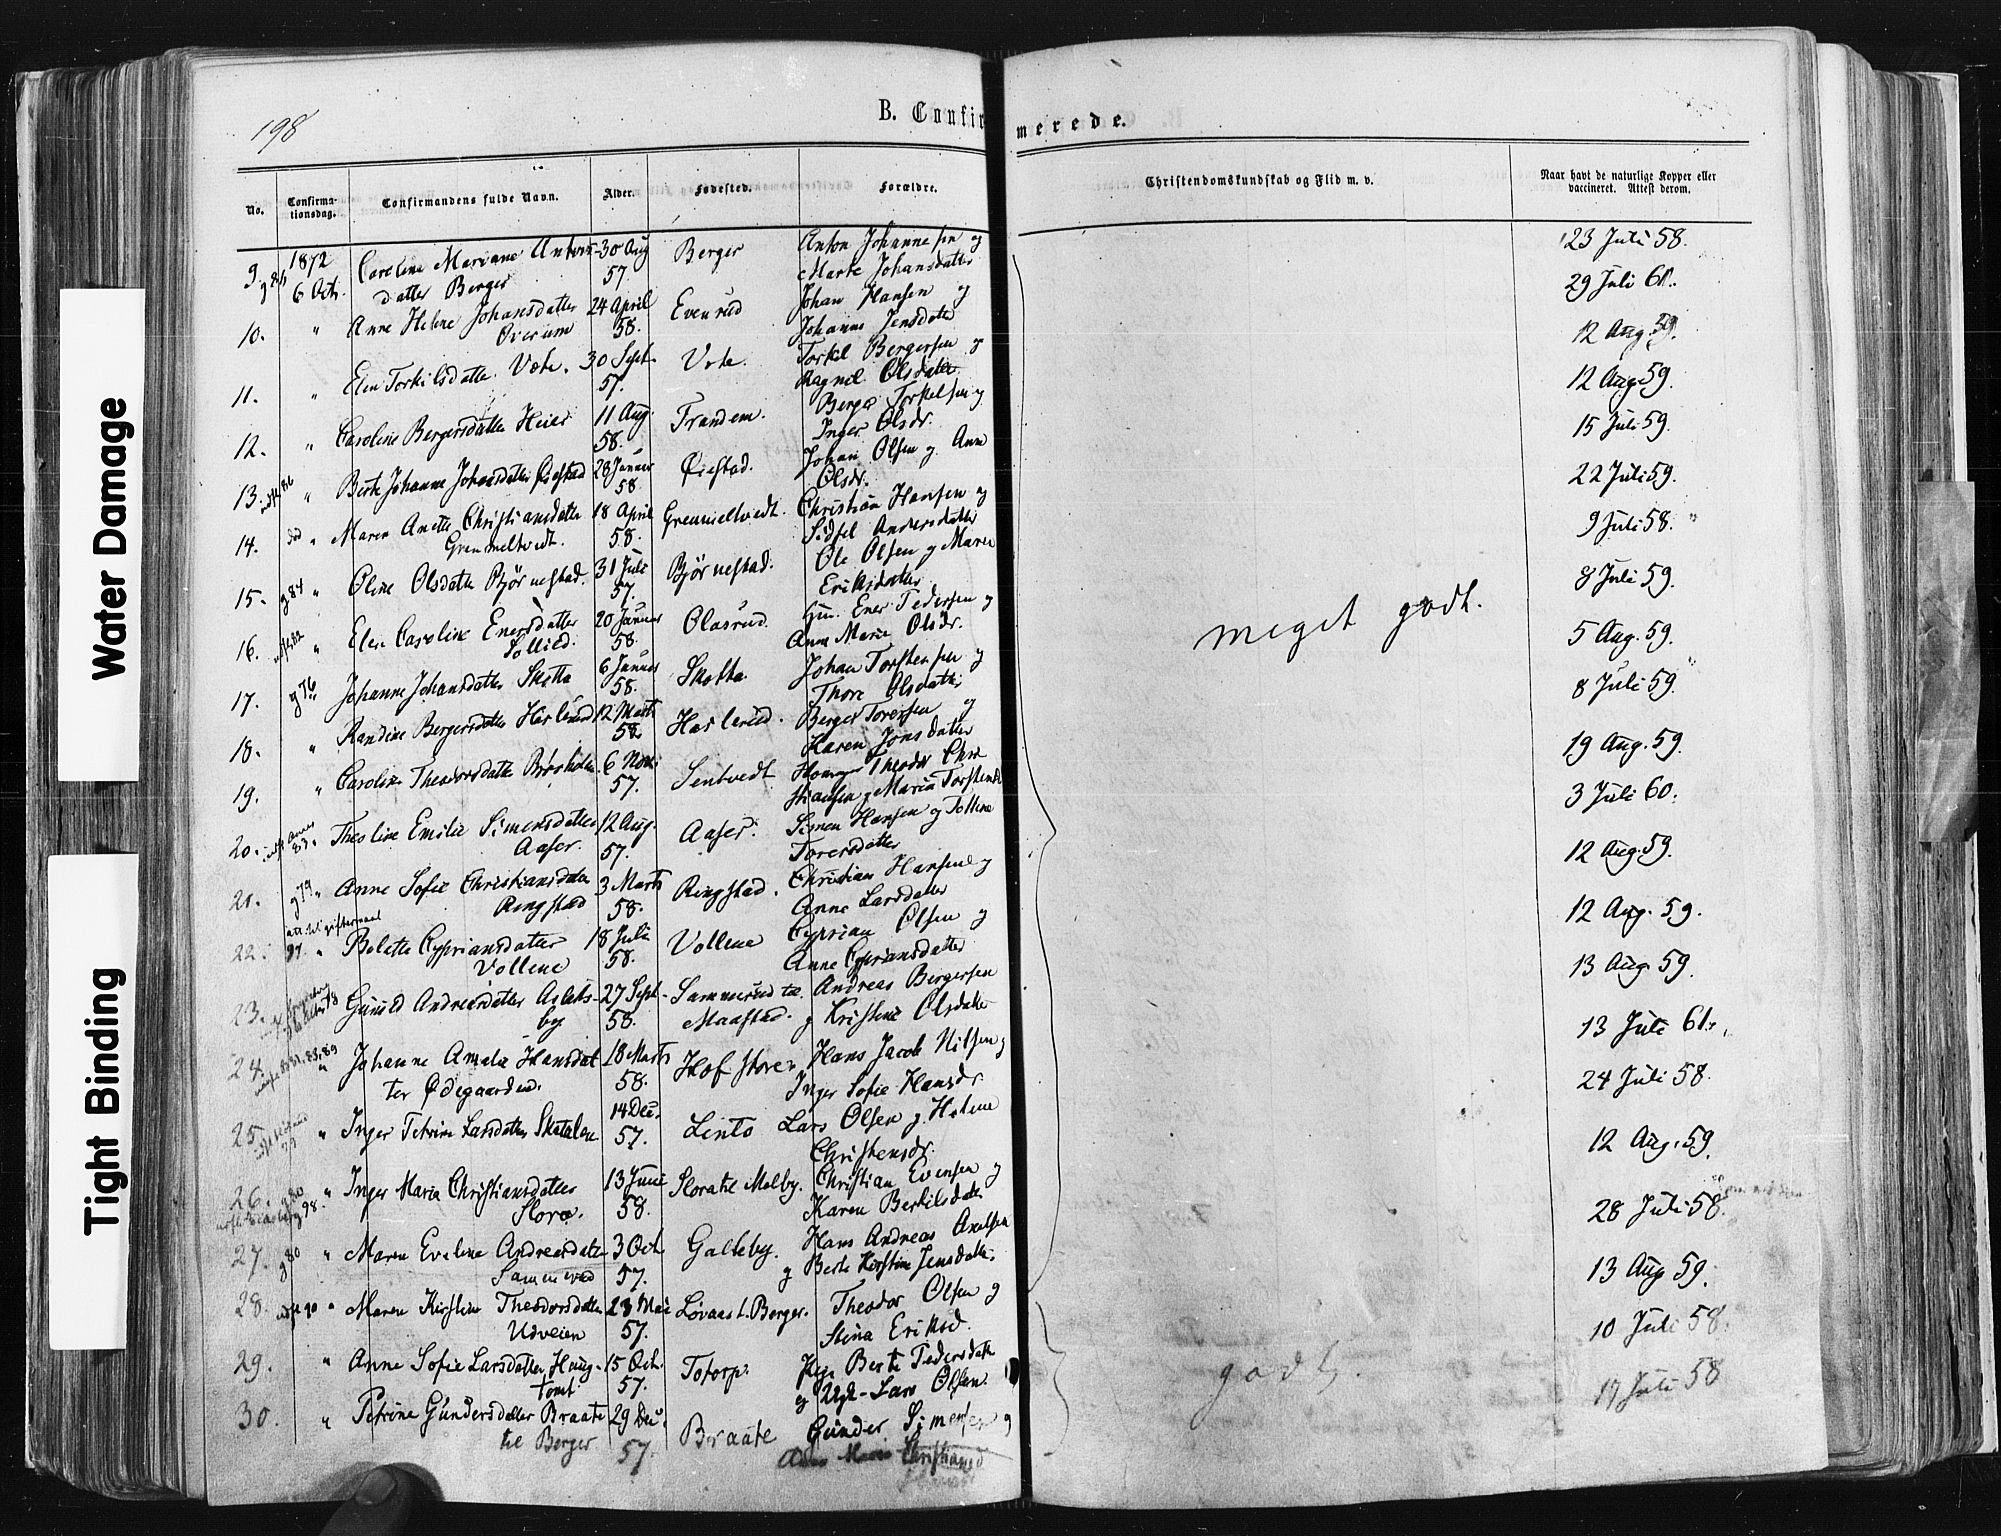 198
B. Confirmerede.
No.
Confirma-
tionsdag.
Confirmandens fulde Navn.
Alder.
Fødested.
Forældre.
Christendomskundskab og Flid m. v.
Naar havt de naturlige Kopper eller
vaccineret. Attest derom.
9. 1872 Caroline Mariane Anton- 30 Aug Berger Anton Johannesen og 23 Juli 58.
6 Oct. datter Berger 57. Marte Johansdatter
10. " Anne Helene Johansdatter 24 April Evenrud Johan Hansen og 29 Juli 60.
58. Johanne Jensdatter
11. " Elen Torkilsdatter Vete. 30 Sept. Vete. Torkil Bergersen og 12 Aug. 59.
57. Ragnil Olsdatter
12. " Caroline Bergersdatter Heier 11 Aug. Trandem. Berger Torkelsen og 12 Aug. 59.
58. Inger Olsdr.
13. " Berte Johanne Johansdatter Øiestad 28 Januar Øiestad. Johan Olsen og Anne 15 Juli 59.
58. Olsdr.
14. " Maren Anette Christiansdatter 18 April Gremmeltvedt. Christian Hansen og 22 Juli 59.
Gremmeltvedt. 58. Sidsel Andersdatter
15. g 84 " Oline Olsdatter Bjørnestad. 31 Juli Bjørnestad. Ole Olsen og Maren 9 Juli 58.
57. Eriksdatter
16. " Elen Caroline Enersdatter 20 Januar Olasrud. Ener Pedersen og 8 Juli 59.
Sollied. 58. Anne Marie Olsdr.
17. g 76 Johanne Johansdatter Skotta 6 Januar Skotta. Johan Torstensen og 5 Aug. 59.
58. Thore Olsdatter
18. " Randine Bergersdatter Haslerud 12 Marts Haslerud. Berger Toresen og 8 Juli 59.
58. Karen Jonsdatter
19. " Caroline Theodorsdatter 6 Nov. Sentvedt. Theodor Chri- 19 Aug. 59.
57. stiansen og Maria Torstensd.
20. " Theoline Emilie Simensdatter 12 Aug. Aaser. Simen Hansen og 3 Juli 60.
Aaser. 57. Toresdatter
21. g 79 " Anne Sofie Christiansdatter 3 Marts Ringstad. Christian Hansen og 12 Aug. 59.
Ringstad 58. Anne Larsdatter
22. " Bolette Cypriansdatter 18 Juli Vollene Cyprian Olsen og 12 Aug. 59.
Vollene 58. Anne Cypriansdatter
23. Gunild Andreasdatter Aslaks- 27 Sept. Sammerud til Andreas Bergersen 13 Aug. 59.
by 58. Maastad. og Kristine Olsdatter
24. " Johanne Amalie Hansdat- 18 Marts Hof store Hans Jacob Nilsen og 13 Juli 61.
ter Ødegaarden. 58. Inger Sofie Hansdr.
25. " Inger Petrine Larsdatter Skatalen 14 Dec. Linto Lars Olsen og Helene 24 Juli 58.
57. Christensdr.
26. g 80 " Inger Maria Christiansdatter 13 Juni Slora til Melby. Christian Evensen og 12 Aug. 59.
Slora. 58. Karen Berkilsdatter
27. g 80 " Maren Eveline Andreasdatter 3 Oct. Galteby. Hans Andreas Axelsen 28 Juli 58.
Sammerud 57. og Berte Kirstine Jensdatter.
28. " Maren Kirstine Theodorsdatter 28 Mai Lovaas t. Berger. Theodor Olsen og 13 Aug. 59.
Udveien 57. Stina Eriksd.
29. " Anne Sofie Larsdatter Haug- 15 Oct. Totorp. Pige Berte Pedersdatter 10 Juli 58.
tomt 57. og Ugk. Lars Olsen.
30. " Petrine Gundersdatter Braate 29 Dec. Braate Gunder Simensen og 17 Juli 58
til Berger 57. Anne Marie Christiansd.
meget godt.
godt.
Water Damage
Tight Binding